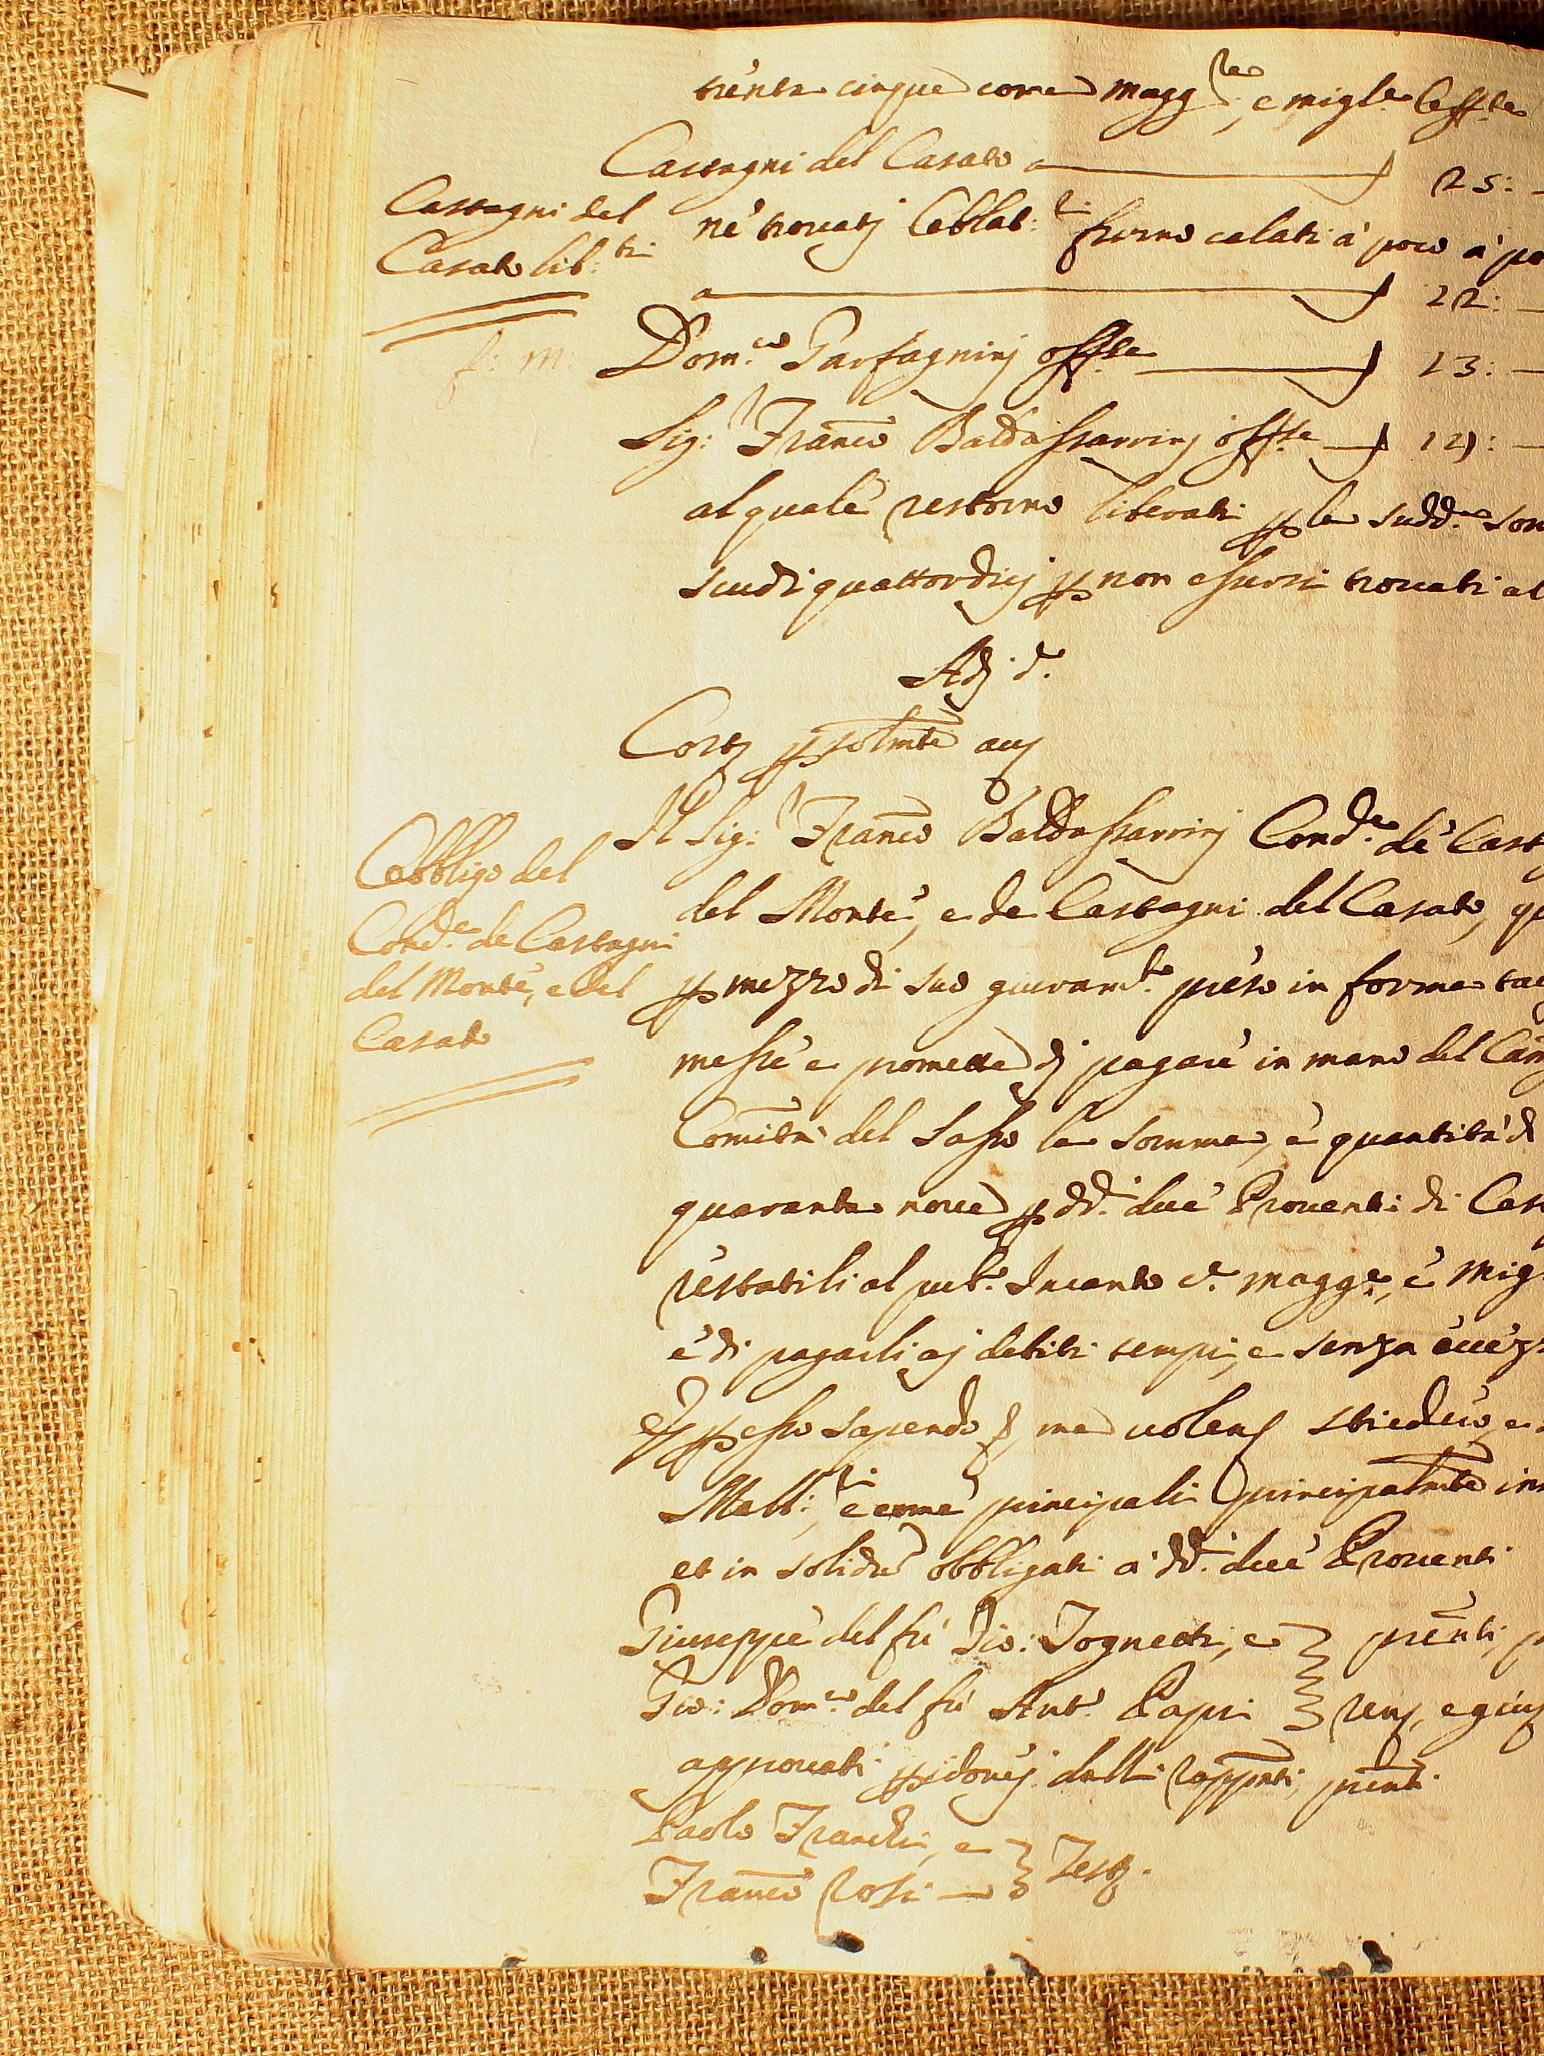 trenta cinque come magg.re, e migl.e Off.te
Castagni del Casato 25: -
Castagni del
Casato lib.ti
né trovatj Obblat.ri furno calati à poco à po
22: -
f: m:
Dom.co Garfagninj offse 13: -
Sig: Franco Baldassarrinj offse 14: -
al quale restorno liberati p la sudd.a som
scudi quattordicj p non essersi trovati al
Adj d.o
Costj psolmte avj
Il Sig: Franco Baldassarrinj Cond.e de Cast
del Monte, e de Castagni del Casato, qu
Obbligo del
Cond.e de Castagni
del Monte, e del
Casato
p mezzo di suo giuram.to preso in forma tac
messe e promette dj pagare in mano del Cam
Comità del Sasso la somma, e quantità di
quaranta nove p dd.i due Proventi di Cas
restatili al pub.o Incanto c.e magg.e, e mig
e di pagarli aj debiti tempi, e senza eccez
Ej p esso sapendo ma volens stiedero, e
Mall:ri e come principali principalmte in
et in solidu obbligati a dd.i due Proventi
Giuseppe del fu Gio: Tognetti, e
Gio: Dom.co del fu Ant.o Papi
pnti, p
renj, e giu
approvati p idonej dalli rappnti, pnti
Paolo Franchi, e
Franco Rosi
Testj.